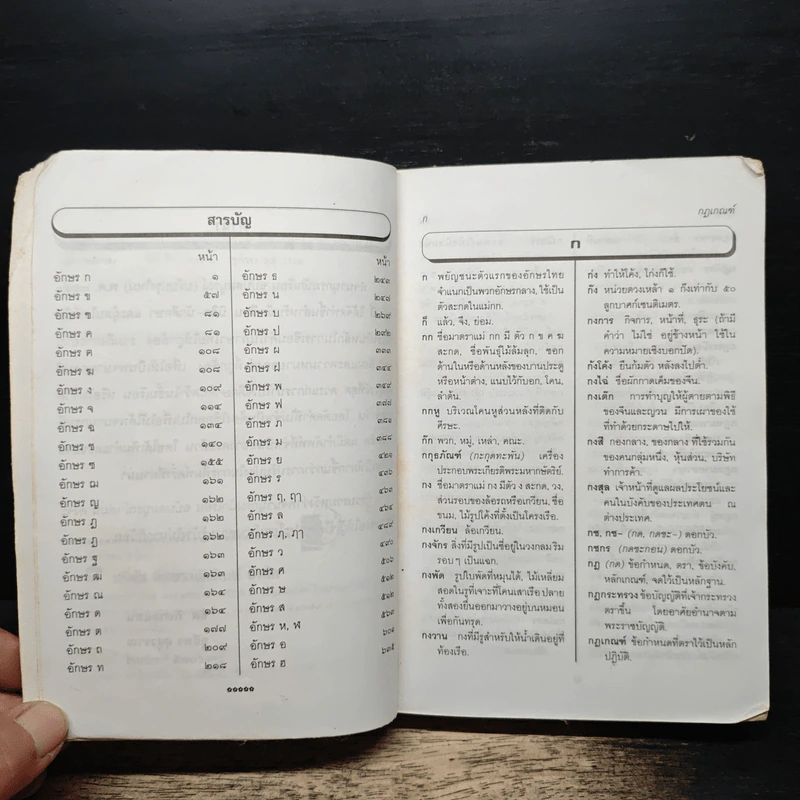 สารบัญ
หน้า
อักษร ก ๑
อักษร ข ๕๗
อักษร ฃ ๘๑
อักษร ค ๘๑
อักษร ฅ ๑๐๘
อักษร ฆ ๑๐๘
อักษร ง ๑๐๙
อักษร จ ๑๑๔
อักษร ฉ ๑๓๔
อักษร ช ๑๔๐
อักษร ซ ๑๕๕
อักษร ฌ ๑๖๑
อักษร ญ ๑๖๒
อักษร ฎ ๑๖๒
อักษร ฏ ๑๖๒
อักษร ฐ ๑๖๓
อักษร ฒ ๑๖๓
อักษร ณ ๑๖๔
อักษร ด ๑๖๔
อักษร ต ๑๗๗
อักษร ถ ๒๐๙
อักษร ท ๒๑๘
หน้า
อักษร ธ
อักษร น
อักษร บ
อักษร ป
อักษร ผ ๓๓๓
อักษร ฝ ๓๔๔
อักษร พ
อักษร ฟ
อักษร ภ
อักษร ม
อักษร ย ๔๒๑
อักษร ร
อักษร ฤ, ฤๅ
อักษร ล
อักษร ฦ, ฦๅ
อักษร ว
อักษร ศ
อักษร ษ
อักษร ส
อักษร ห, ฬ
อักษร อ
อักษร ฮ
ก กฎเกณฑ์
ก
ก พยัญชนะตัวแรกของอักษรไทย
จำแนกเป็นพวกอักษรกลาง, ใช้เป็น
ตัวสะกดในแม่กก.
ก็ แล้ว, จึง, ย่อม.
กก ชื่อมาตราแม่ กก มี ตัว ก ข ค ฆ
สะกด, ชื่อพันธุ์ไม้ล้มลุก, ซอก
ด้านในหรือด้านหลังของบานประตู
หรือหน้าต่าง, แนบไว้กับอก, โคน,
ลำต้น.
กกหู บริเวณโคนหูส่วนหลังที่ติดกับ
ศีรษะ.
กัก พวก, หมู่, เหล่า, คณะ.
กกุธภัณฑ์ (กะกุดทะพัน) เครื่อง
ประกอบพระเกียรติพระมหากษัตริย์.
กง ชื่อมาตราแม่ กง มีตัว ง สะกด, วง,
ส่วนรอบของล้อรถหรือเกวียน, ชื่อ
ขนม, ไม้รูปโค้งที่ตั้งเป็นโครงเรือ.
กงเกวียน ล้อเกวียน.
กงจักร สิ่งที่มีรูปเป็นซี่อยู่ในวงกลมริม
รอบ ๆ เป็นแฉก.
กงพัด รูปใบพัดที่หมุนได้, ไม้เหลี่ยม
สอดในรูที่เจาะที่โคนเสาเรือน ปลาย
ทั้งสองยื่นออกมาวางอยู่บนหมอน
เพื่อกันทรุด.
กงวาน กงที่มีรูสำหรับให้น้ำเดินอยู่ที่
ท้องเรือ.
ก่ง ทำให้โค้ง, โก่งก็ใช้.
กึง หน่วยตวงเหล้า ๑ กึงเท่ากับ ๕๐
ลูกบาศก์เซนติเมตร.
กงการ กิจการ, หน้าที่, ธุระ (ถ้ามี
คำว่า ไม่ใช่ อยู่ข้างหน้า ใช้ใน
ความหมายเชิงบอกปัด).
กงโค้ง ยืนก้มตัว หลังลงไปต่ำ.
กงไฉ่ ชื่อผักกาดเค็มของจีน.
กงเต๊ก การทำบุญให้ผู้ตายตามพิธี
ของจีนและญวน มีการเผาของใช้
ที่ทำด้วยกระดาษไปให้.
กงสี กองกลาง, ของกลาง ที่ใช้รวมกัน
ของคนกลุ่มหนึ่ง, หุ้นส่วน, บริษัท
ทำการค้า.
กงสุล เจ้าหน้าที่ดูแลผลประโยชน์และ
คนในบังคับของประเทศตน ณ
ต่างประเทศ.
กช, กช- (กด, กดชะ-) ดอกบัว.
กชกร (กดชะกอน) ดอกบัว.
กฎ (กด) ข้อกำหนด, ตรา, ข้อบังคับ,
หลักเกณฑ์, จดไว้เป็นหลักฐาน.
กฎกระทรวง ข้อบัญญัติที่เจ้ากระทรวง
ตราขึ้น โดยอาศัยอำนาจตาม
พระราชบัญญัติ.
กฎเกณฑ์ ข้อกำหนดที่ตราไว้เป็นหลัก
ปฏิบัติ.